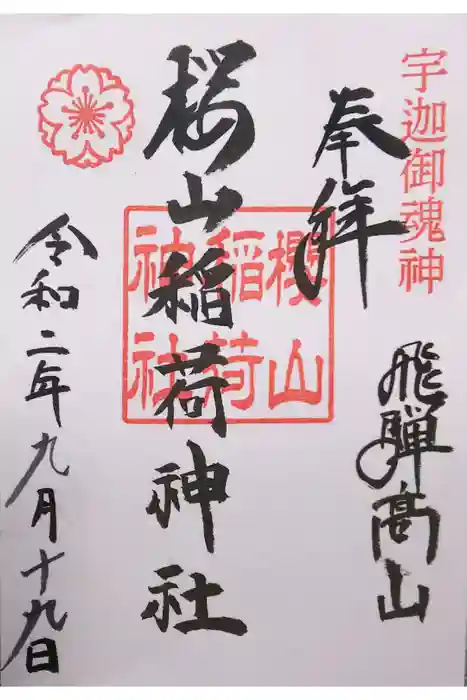 宇迦御魂神
奉拝
飛騨高山
桜山稲荷神社
櫻山
稲荷
神社
令和二年九月十九日